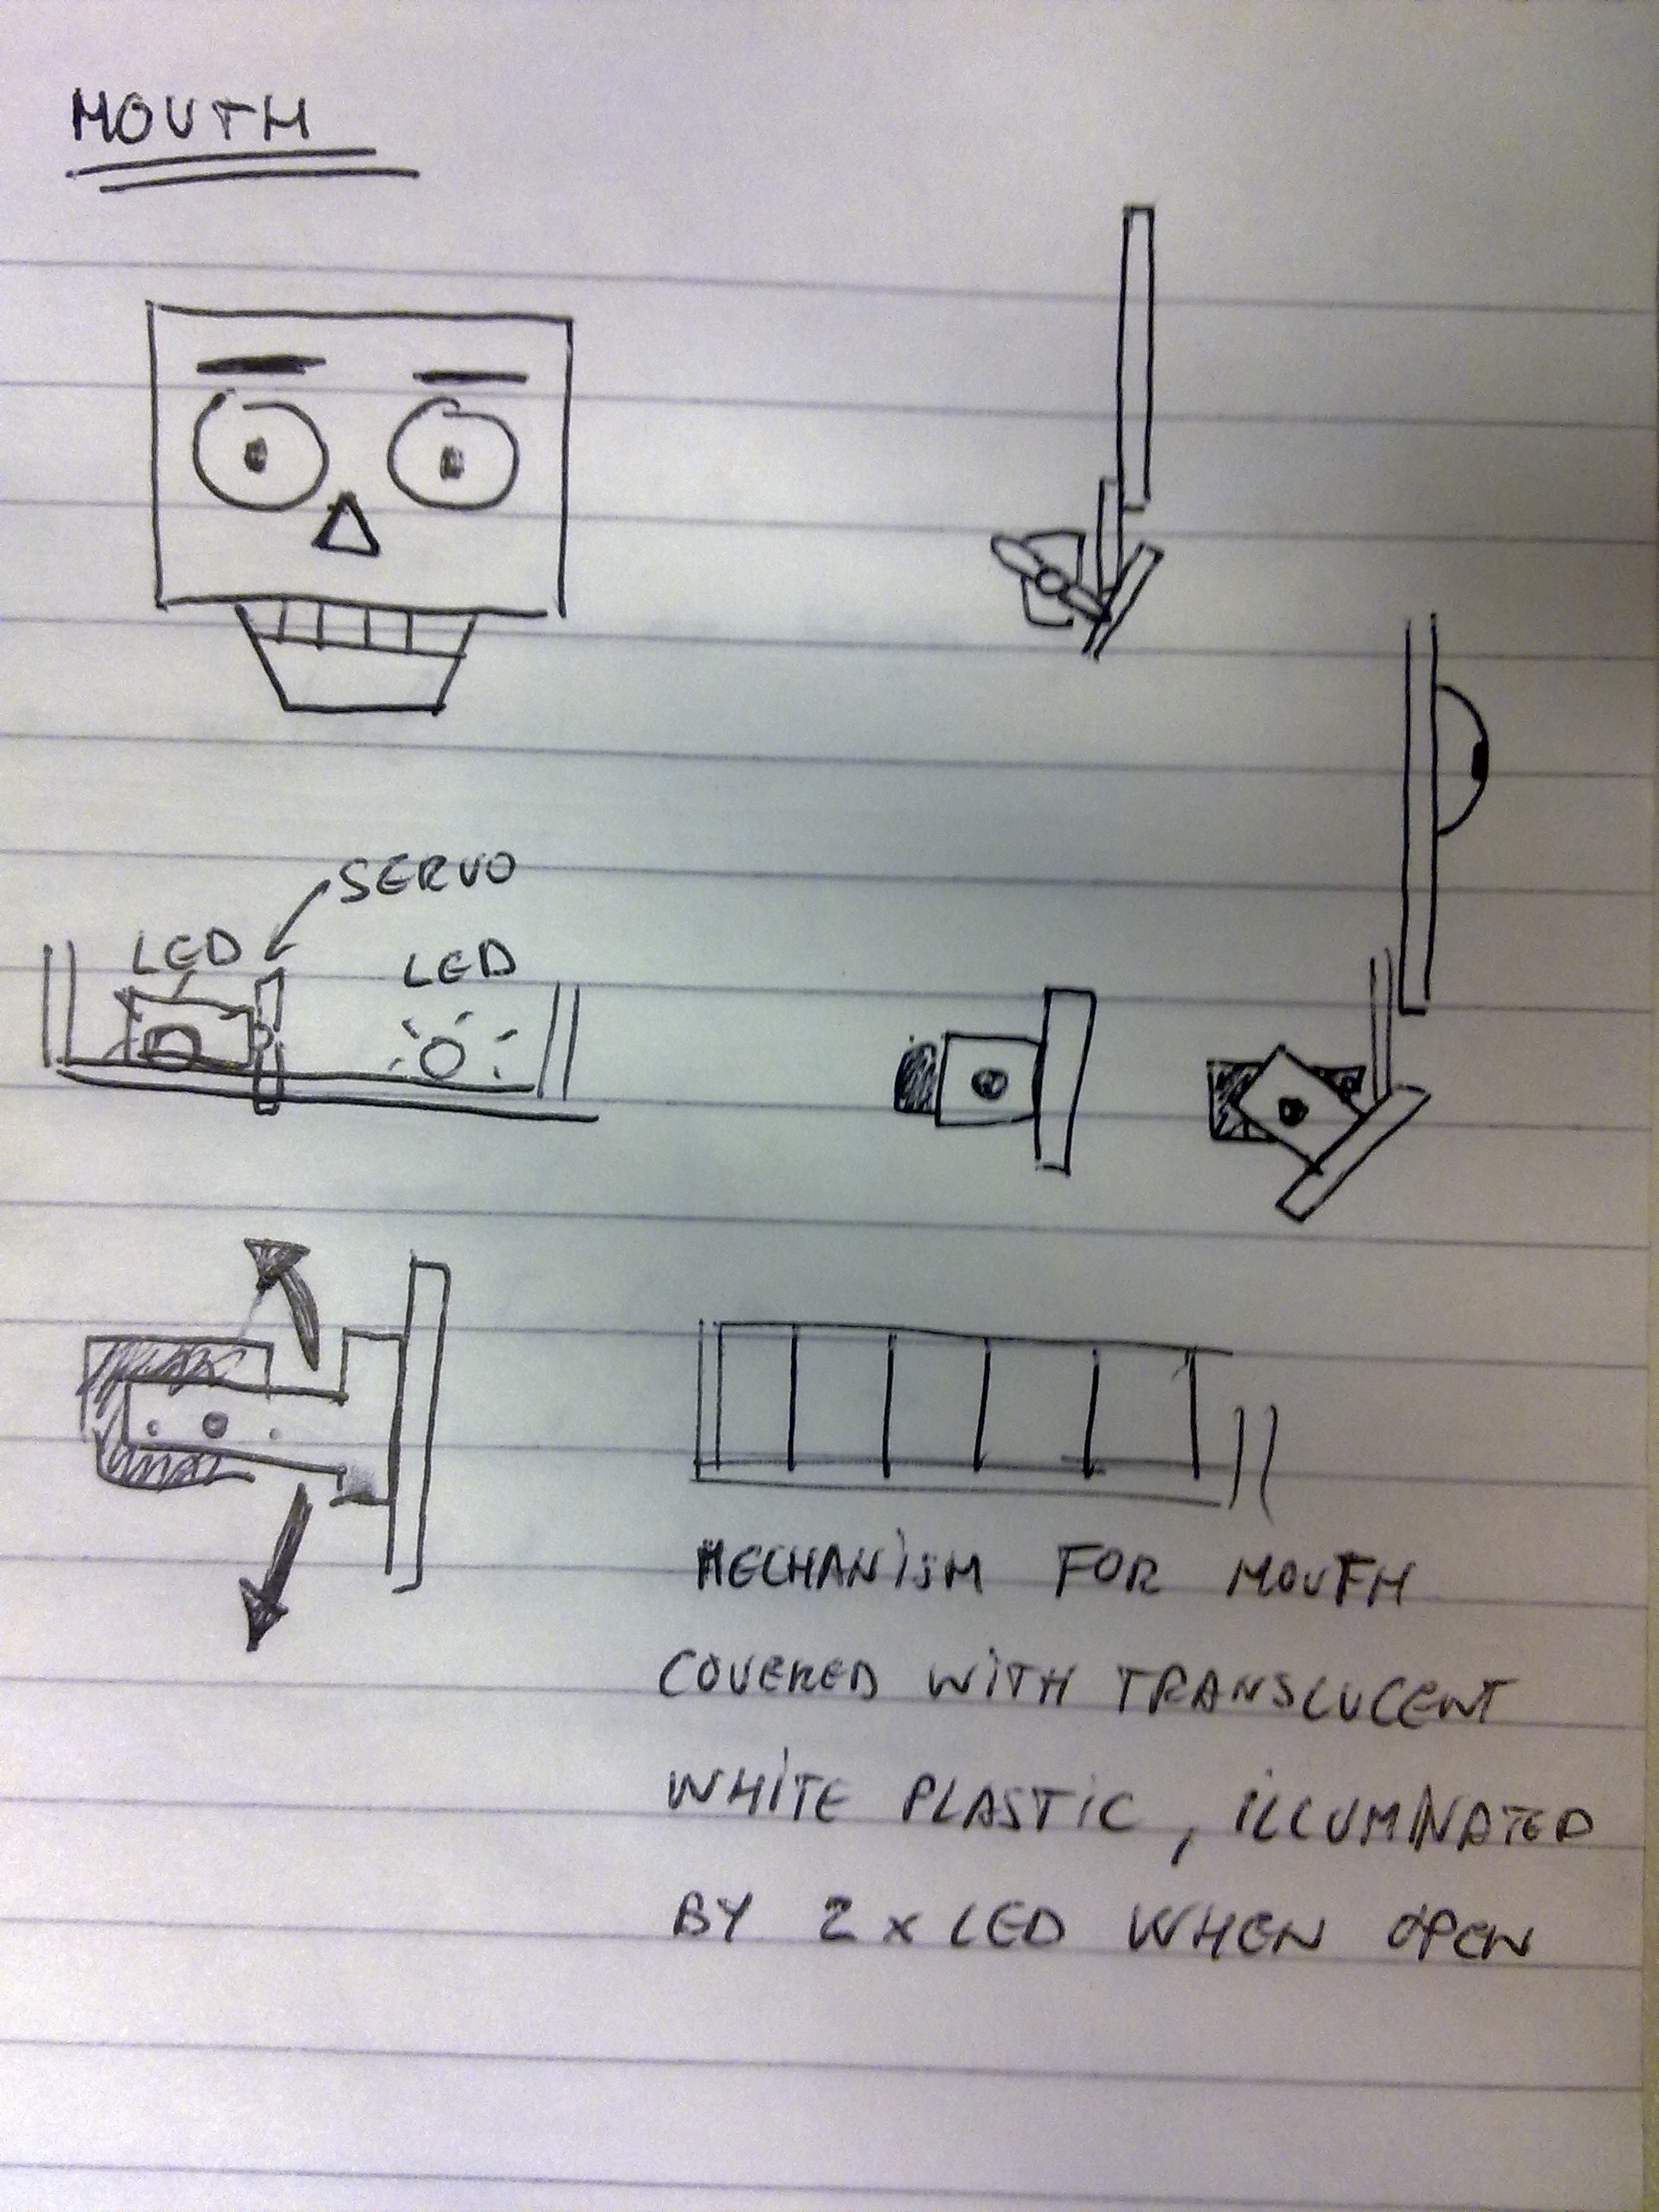 MOUTH
SERVO
LED
LED
MECHANISM FOR MOUTH
COVERED WITH TRANSLUCENT
WHITE PLASTIC, ILLUMINATED
BY 2x LED WHEN OPEN